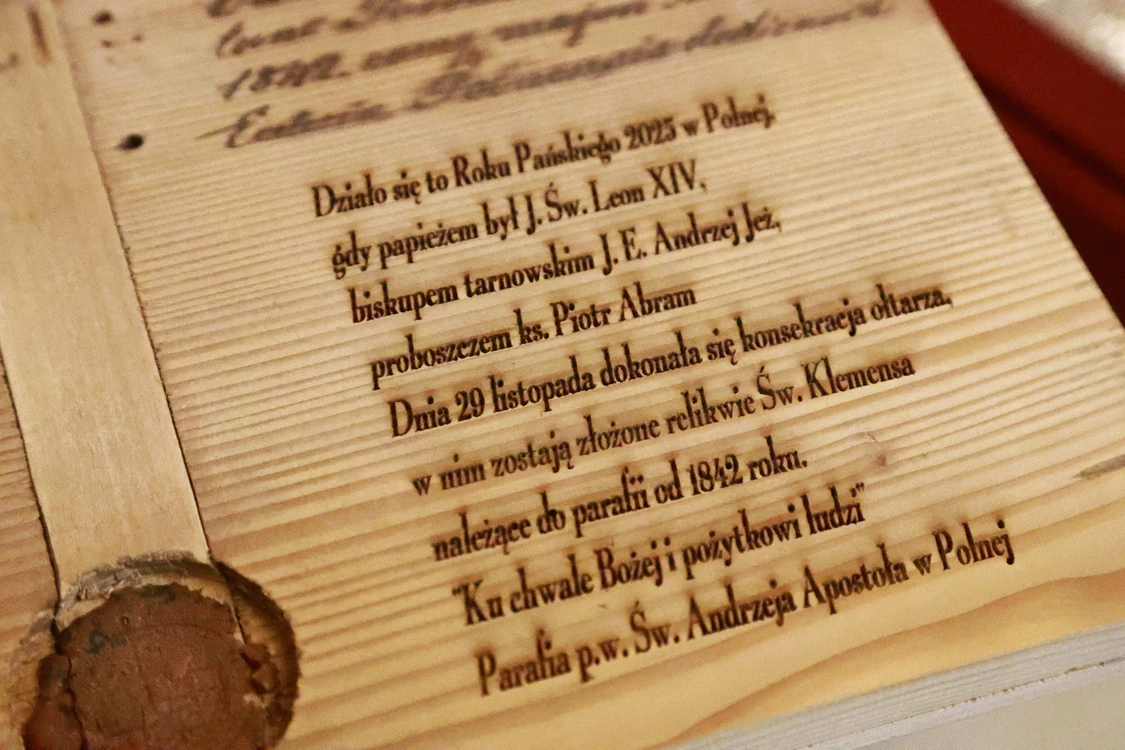 1842.
Działo się to Roku Pańskiego 2025 w Polnej,
gdy papieżem był J. Św. Leon XIV,
biskupem tarnowskim J. E. Andrzej Jeż,
proboszczem ks. Piotr Abram
Dnia 29 listopada dokonała się konsekracja ołtarza,
w nim zostają złożone relikwie Św. Klemensa
należące do parafii od 1842 roku.
"Ku chwale Bożej i pożytkowi ludzi"
Parafia p.w. Św. Andrzeja Apostoła w Polnej